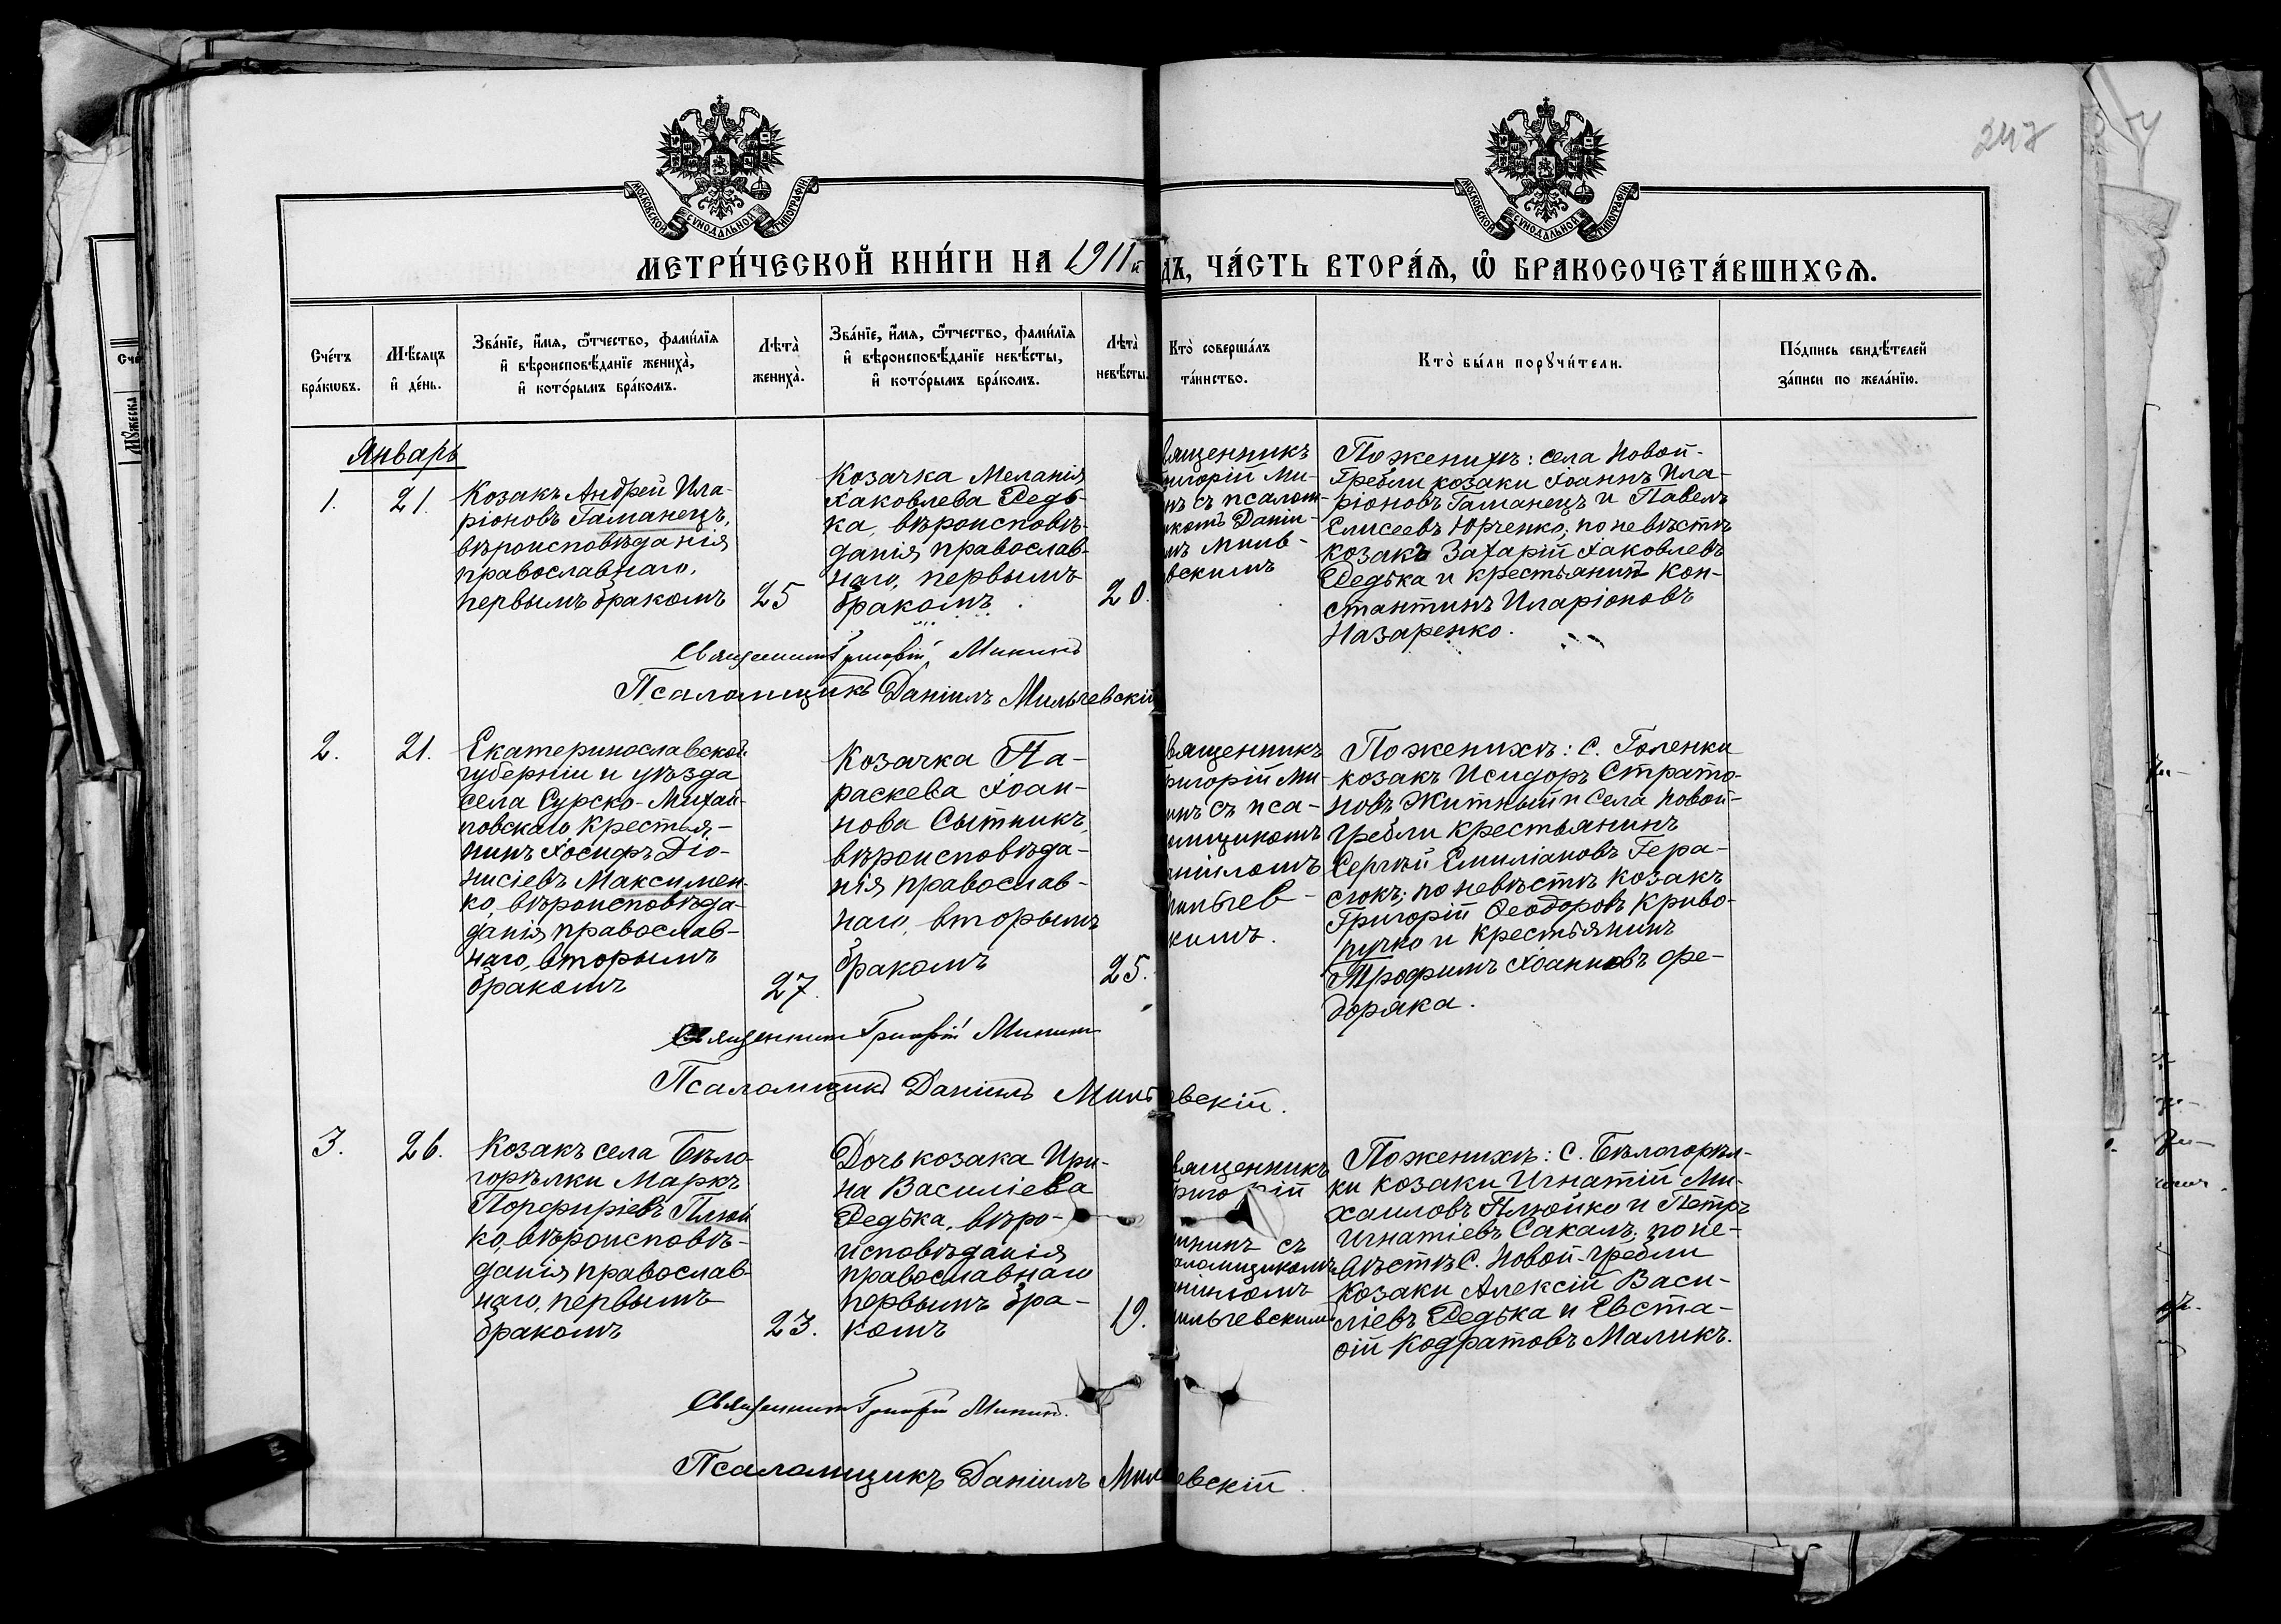 247
МОСКОВСКОЙ СУНОДАЛЬНОЙ ТИПОГРАФІИ
МОСКОВСКОЙ СУНОДАЛЬНОЙ ТИПОГРАФІИ
МЕТРИ́ЧЕСКОЙ КНИ́ГИ НА 1911й
ДЪ, ЧА́СТЬ ВТОРА́Ѧ, Ѿ БРАКОСОЧЕТА́ВШИХСѦ.
Сче́тъ бра́кѡвъ.
Мѣ́сяцъ и҆ де́нь.
Зва́нїе, и҆́мѧ, ѻ҆́тчество, фами́лїѧ и҆ вѣроисповѣ́данїе жениха̀, и҆ кото́рымъ бра́комъ.
Лѣта̀ жениха̀.
Зва́нїе, и҆́мѧ, ѻ҆́тчество, фами́лїѧ и҆ вѣроисповѣ́данїе невѣ́сты, и҆ кото́рымъ бра́комъ.
Лѣта̀ невѣ́сты.
Кто̀ соверша́лъ та́инство.
Кто̀ бы́ли порꙋчи́тели.
По́дпись свидѣ́телей за́писи по жела́нїю.
Январь
1.
21.
Козакъ Андрей Ила-
ріоновъ Гаманецъ,
вѣроисповѣданія
православнаго,
первымъ бракомъ
25
Козачка Меланія
Іаковлева Дедь-
ка, вѣроисповѣ-
данія православ-
наго, первымъ
бракомъ
20.
вященникъ
ригорій Ми-
нъ съ псалом-
комъ Даніи-
мъ Миль-
вскимъ
По женихѣ: села Новой-
Гребли козаки Іоаннъ Ила-
ріоновъ Гаманецъ и Павелъ
Елисеевъ Юрченко; по невѣстѣ
козакъ Захарій Іаковлевъ
Дедька и крестьянинъ Кон-
стантинъ Иларіоновъ
Назаренко.
Священникъ Григорій Мининъ
Псаломщикъ Даніилъ Мильчевскій
2.
21.
Екатеринославской
губерніи и уѣзда
села Сурско-Михай-
ловскаго крестья-
нинъ Іосифъ Діо-
нисіевъ Максимен-
ко, вѣроисповѣда-
данія православ-
наго, вторымъ
бракомъ
27.
Козачка Па-
раскева Іоан-
нова Сытникъ,
вѣроисповѣда-
нія православ-
наго, вторымъ
бракомъ
25.
вященникъ
ригорій Ми-
инъ съ пса-
омщикомъ
аніиломъ
ильчев-
кимъ.
По женихѣ: с. Голенки
козакъ Исидоръ Страто-
новъ Житный и села Новой-
Гребли крестьянинъ
Сергѣй Емиліановъ Гера-
сюкъ; по невѣстѣ козакъ
Григорій Ѳеодоровъ Криво-
ручко и крестьянинъ
Трофимъ Іоанновъ Фе-
доряка.
Священникъ Григорій Мининъ
Псаломщикъ Даніилъ Мильчевскій.
3.
26.
Козакъ села Бѣло-
горѣлки Маркъ
Порфиріевъ Плюй
ко, вѣроисповѣ-
данія православ-
наго, первымъ
бракомъ
23.
Дочь козака Ири-
на Василіева
Дедька, вѣро-
исповѣданія
православнаго
первымъ бра-
комъ
19.
вященникъ
ригорій
ининъ съ
аломщикомъ
аніиломъ
ильчевскимъ
По женихѣ: с. Бѣлогорѣл-
ки козаки Игнатій Ми-
хаиловъ Плюйко и Петръ
Игнатіевъ Сакалъ; по не-
вѣстѣ С. Новой-Гребли
козаки Алексій Васи-
ліевъ Дедька и Евста-
ѳій Кодратовъ Маликъ.
Священникъ Григорій Мининъ.
Псаломщикъ Даніилъ Мильчевскій.